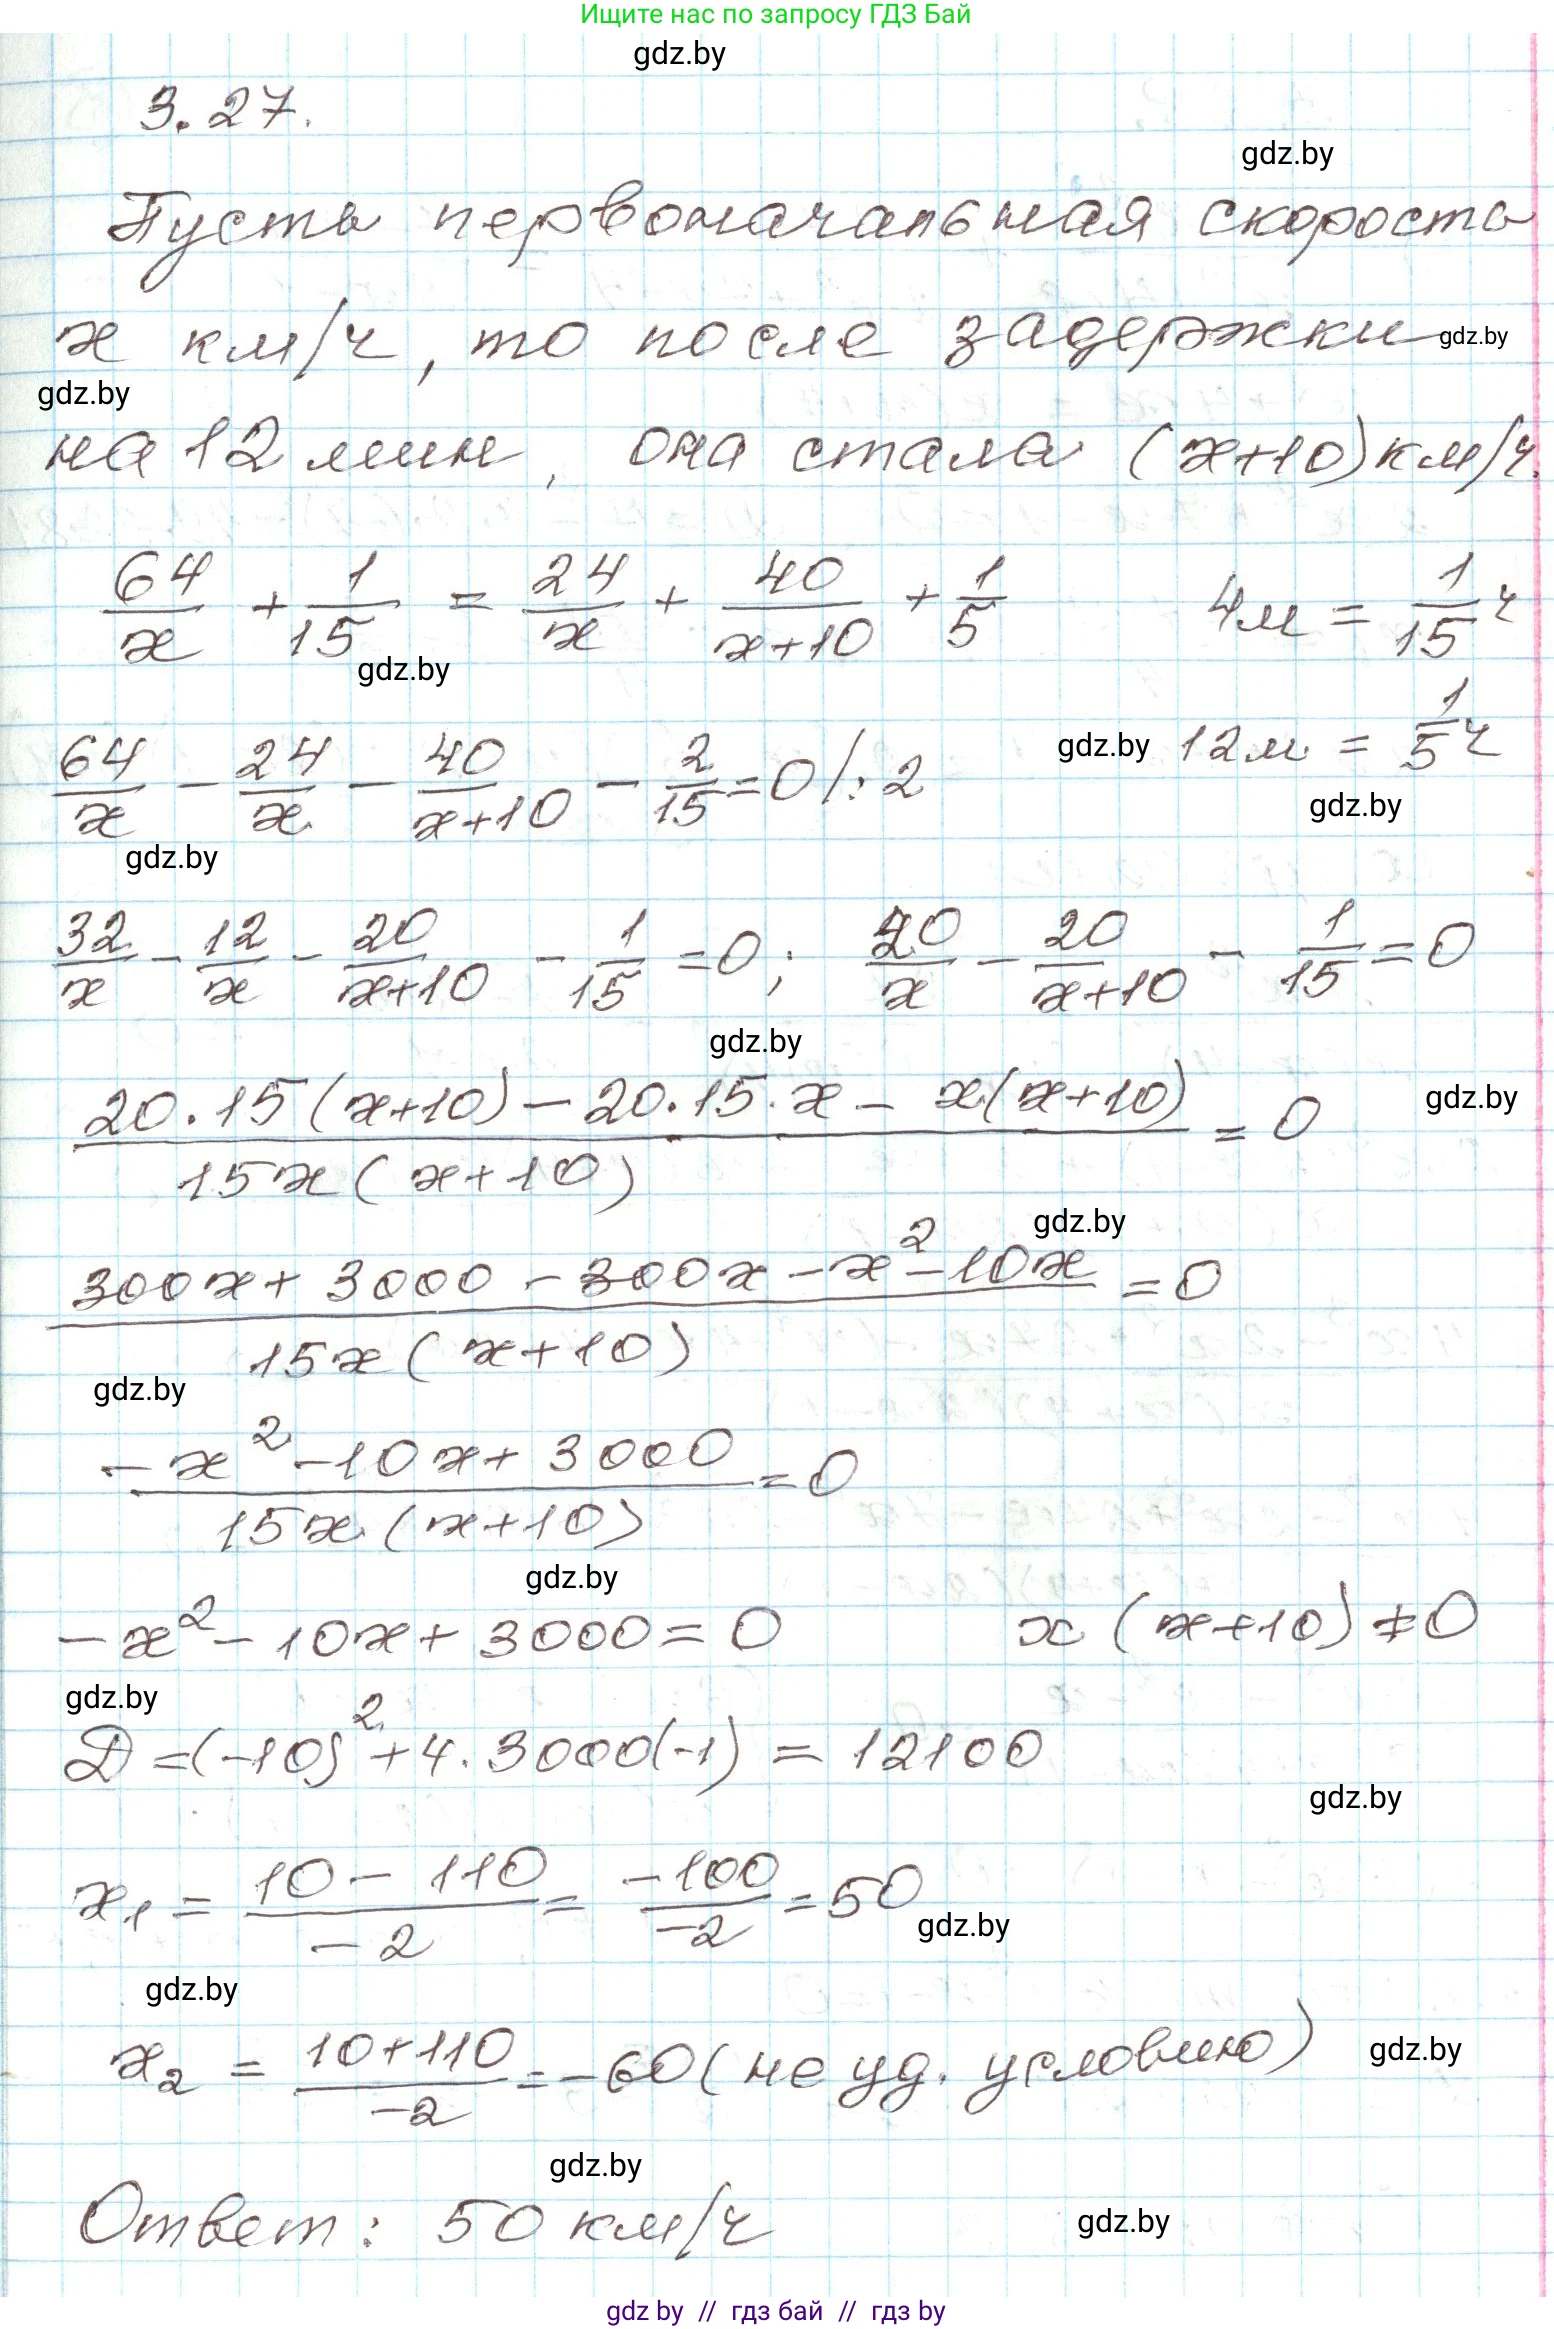 Ищите нас по запросу ГДЗ Бай
gdz.by
3.27.
gdz.by
Пусть первоначальная скорость
x км/ч, то после задержки gdz.by
gdz.by
на 12 мин, она стала (x+10) км/ч.
64/x + 1/15 = 24/x + 40/(x+10) + 1/5    4м = 1/15 ч
gdz.by
64/x - 24/x - 40/(x+10) - 2/15 = 0 /:2    gdz.by 12м = 1/5 ч
gdz.by
gdz.by
32/x - 12/x - 20/(x+10) - 1/15 = 0; 20/x - 20/(x+10) - 1/15 = 0
gdz.by
(20·15(x+10) - 20·15·x - x(x+10))/(15x(x+10)) = 0 gdz.by
gdz.by
(300x + 3000 - 300x - x² - 10x)/(15x(x+10)) = 0
gdz.by
(-x² - 10x + 3000)/(15x(x+10)) = 0
gdz.by
-x² - 10x + 3000 = 0    x(x+10) ≠ 0
gdz.by
D = (-10)² + 4·3000(-1) = 12100
gdz.by
x₁ = (10 - 110)/(-2) = (-100)/(-2) = 50
gdz.by
gdz.by
x₂ = (10+110)/(-2) = -60 (не уд. условию) gdz.by
gdz.by
Ответ: 50 км/ч
gdz.by
gdz by // гдз бай // гдз by